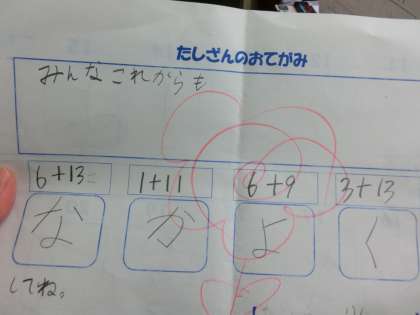 たしざんのおてがみ
みんなこれからも
6+13 1+11 6+9 3+13
な か よ く
してね。